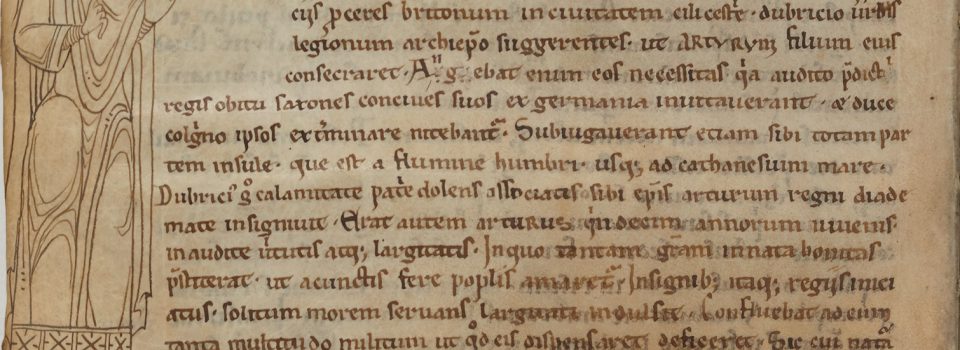 eiꝰ ꝓceres britonum in ciuitatem cilicestr̄e · dubricio urbis
legionum archiep̄o suggerentes · ut ARTVRVM filium eius
consecraret · ebat enim eos necessitas q̄a audito p̄dicti
regis obitu saxones conciues suos ex germania inuitauerant · &
duce
colg̅no ipsos ext̄minare nitebant̄ · Subiugauerant etiam sibi totam par
tem insule · que est a flumine humbri · usq; ad cathanesium mare ·
Dubriciꝰ g̊ calamitate pat̄e dolens associatis sibi ep̄is arturum regni diade
mate insigniuit · Erat autem arturus q̄indecim annorum iuuenis ·
inaudite uirtutis atq; largitatis · In quo tantam gr̄am innata bonitas
p̄stiterat · ut a cunctis fere popl̄is amaret̄ · Insignib; itaq; regiis inici
atus · solitum morem seruans largitati indulsit · Confluebat ad eum
tanta multitudo militum ut q̊d eis dispensaret deficeret · Sic cui nat̄a